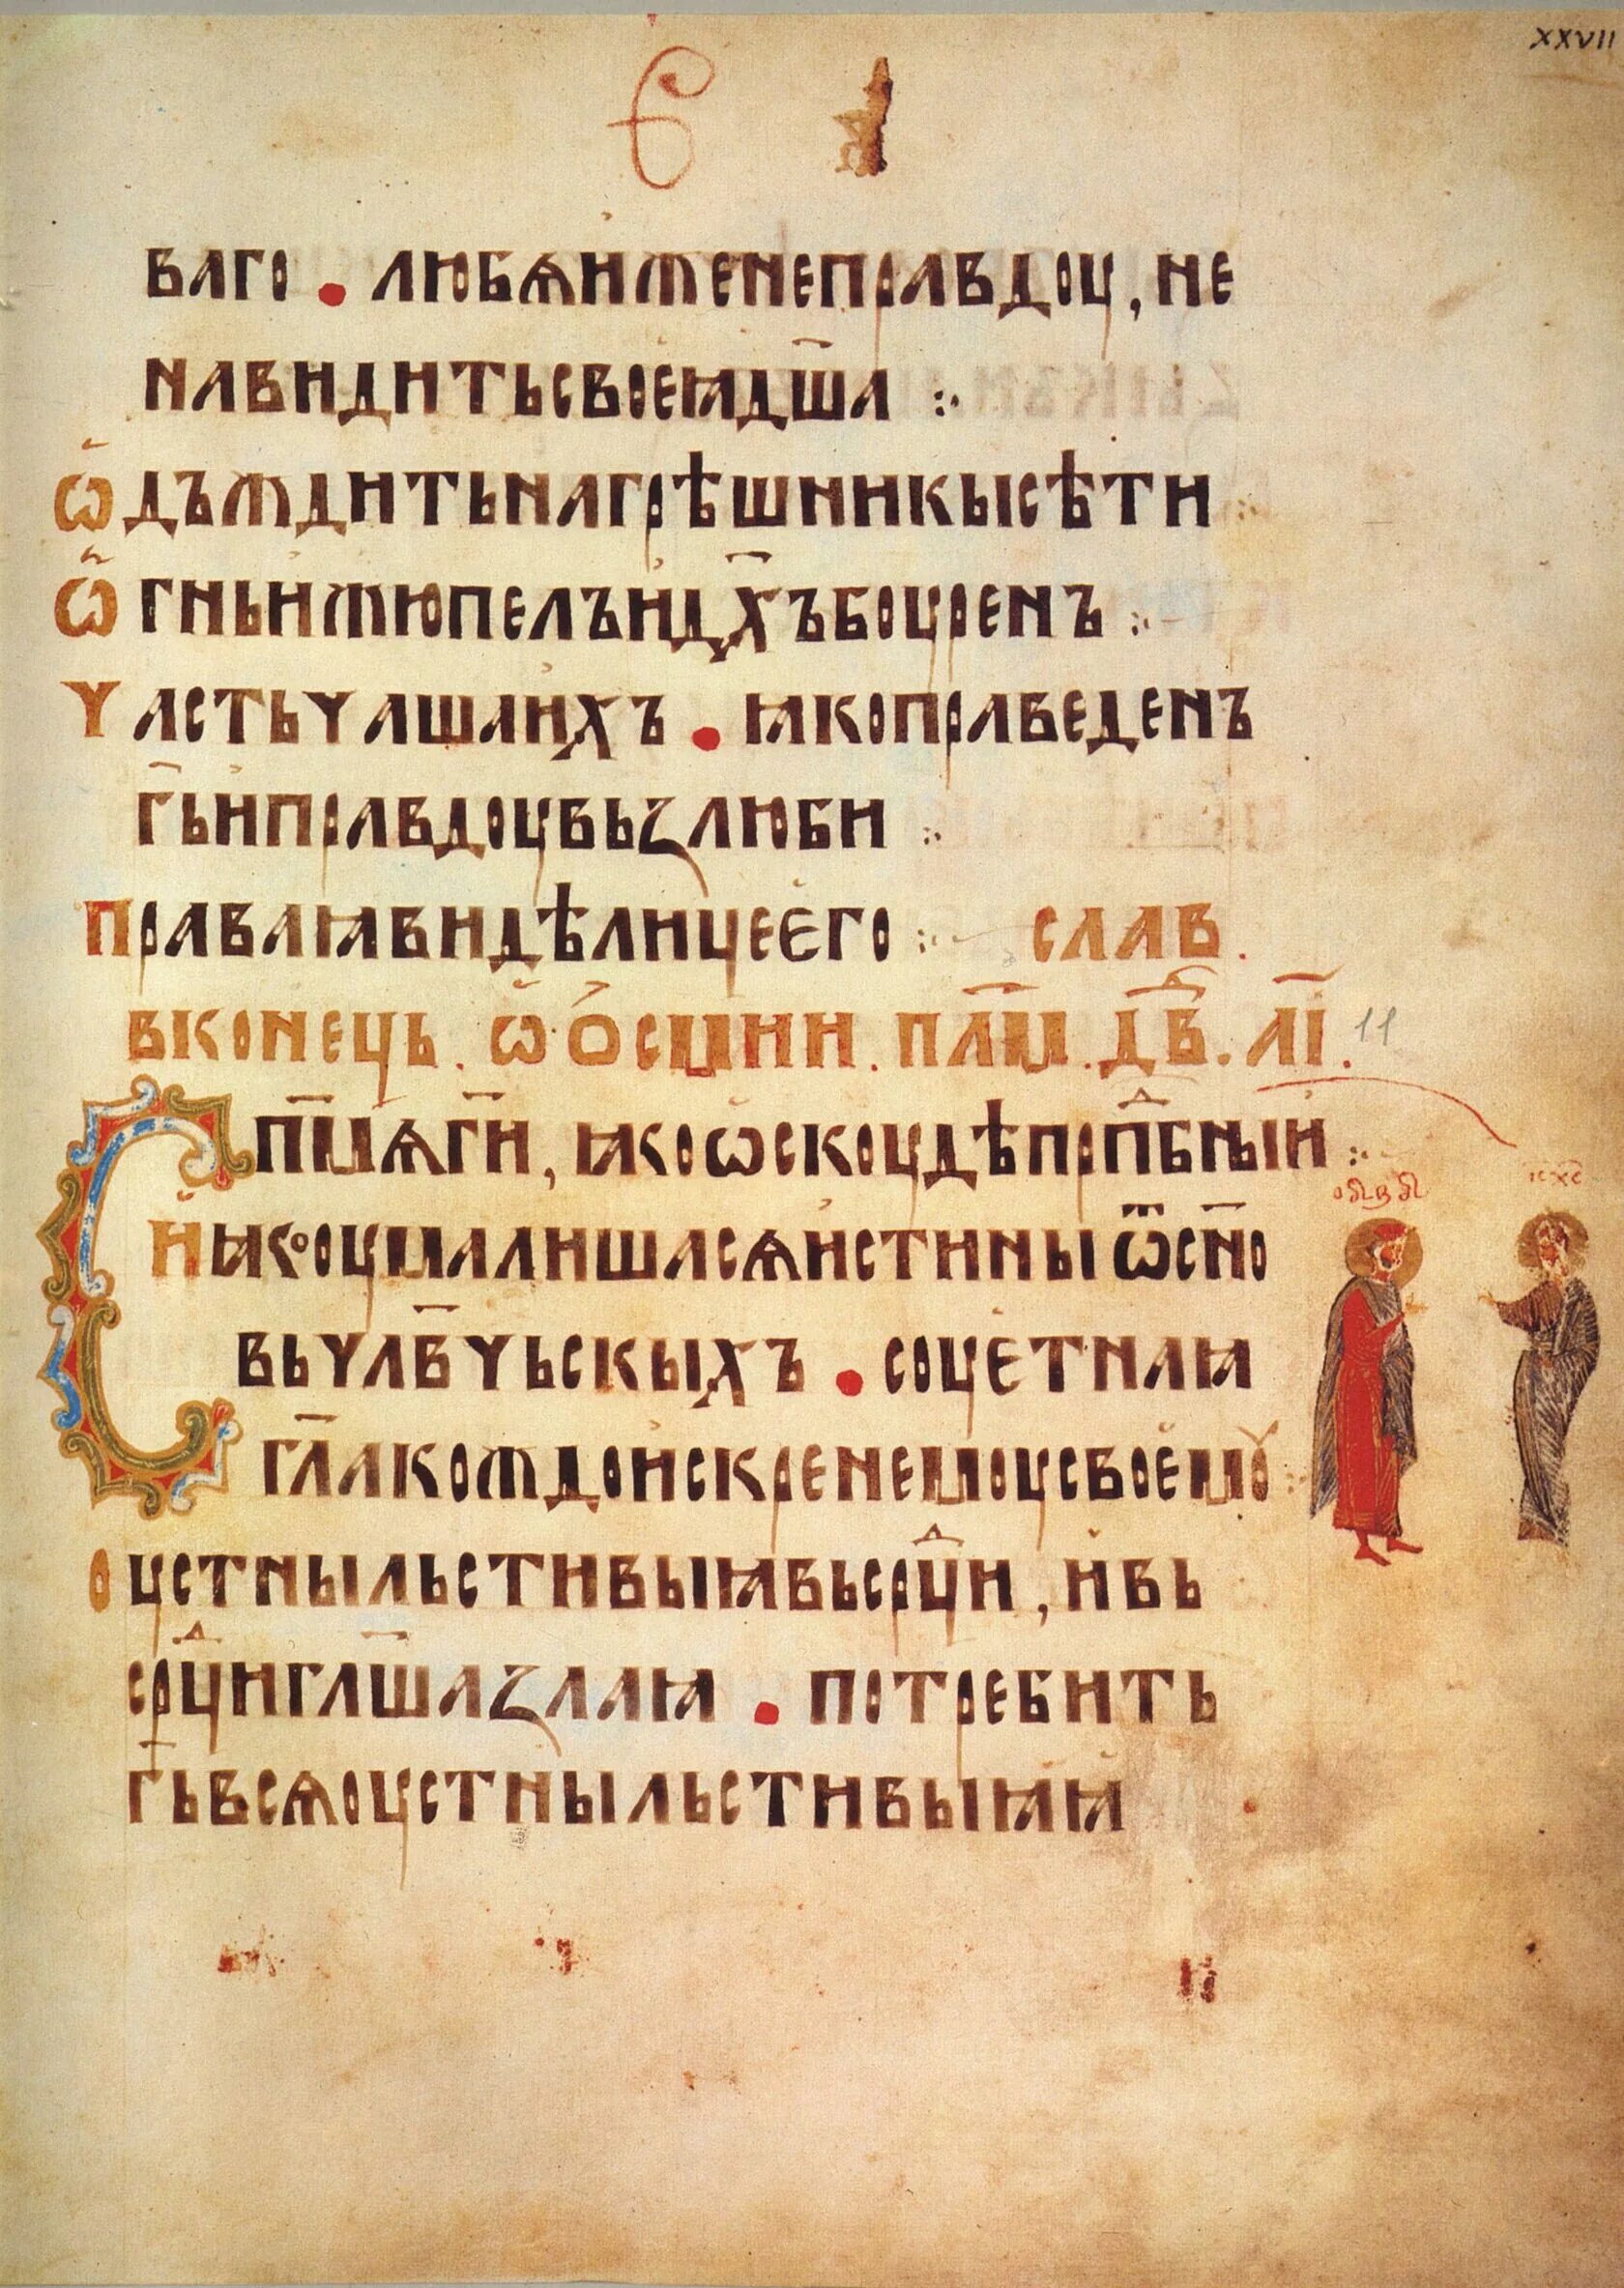 XXVII
Є
ваго • любѧижененеправдоу, не
навидитьсвоеꙗдш҃а ⁘
ѡдъждитьнагрѣшникысѣти
ѡгньижюпелъидх҃ъбоуренъ ⁘
ЧастьчашаиХъ • ꙗкоправеденъ
г҃ьиправдоувьꙁлюби ⁘
Праваꙗвидѣлицеего ⁘ слав.
вконець . ѡосмии . пл҃м . дв҃д . л҃і . 11
Сп҃имѧг҃и, ꙗкоѡскоудѣпрп҃дбныи ⁘
иꙗкоѹмалишасѧистины ѿсн҃о
вьчл҃вчьскыхъ • соуетнаꙗ
гл҃акождоискренемоусвоемꙋ ⁘
оустныльстивыꙗвьср҃дци, ивь
ср҃дциглш҃аꙁлаꙗ • потребить
г҃ьвсѧоустныльстивыꙗꙗ
ις χς